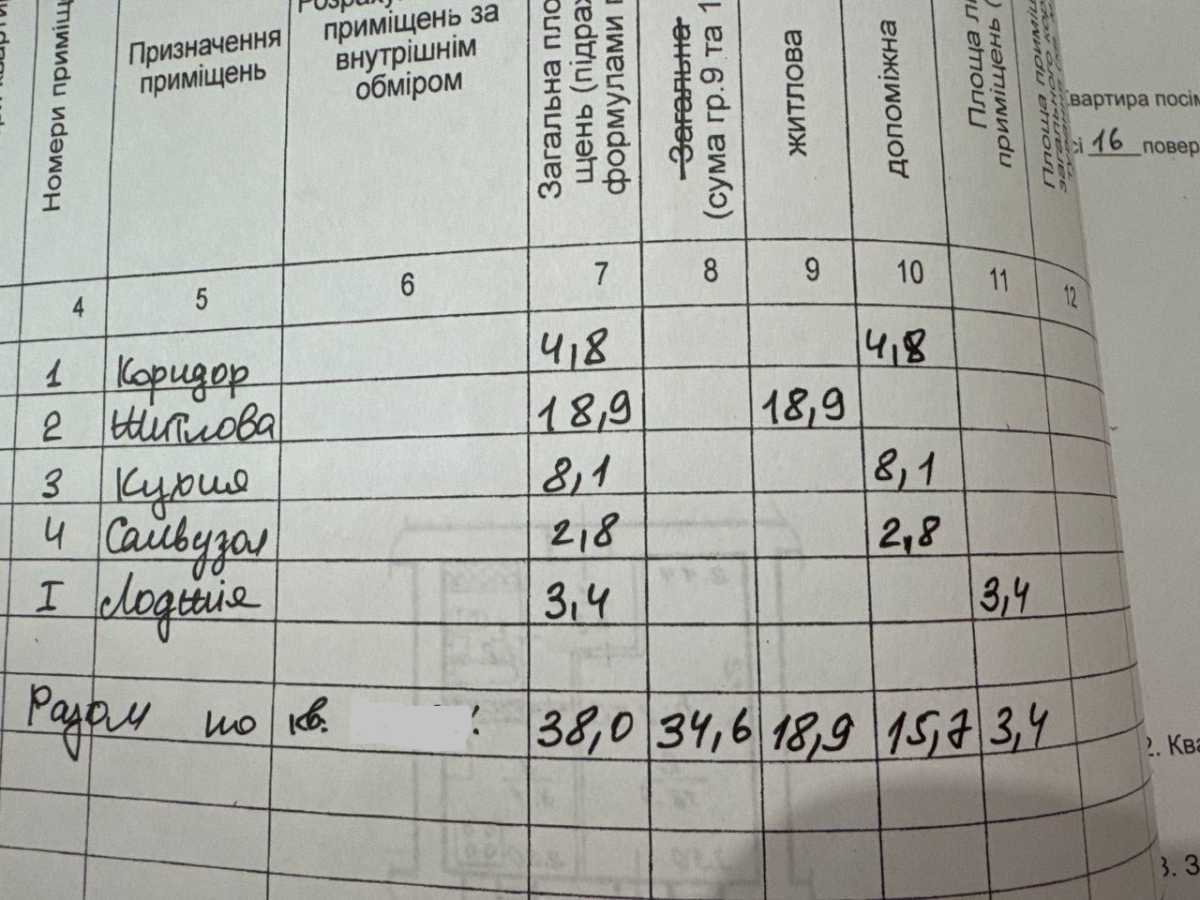 Номери приміщ
Призначення
приміщень
приміщень за
внутрішнім
обміром
Загальна пло
щень (підрах
формулами
Загальна
(сума гр.9 та 1
житлова
допоміжна
Площа
приміщень (
квартира посі
сі 16 повер
4 5 6 7 8 9 10 11 12
1 Коридор 4,8 4,8
2 Житлова 18,9 18,9
3 Кухня 8,1 8,1
4 Санвузол 2,8 2,8
I Лоджія 3,4 3,4
Разом по кв. : 38,0 34,6 18,9 15,7 3,4
2. Ква
3. З